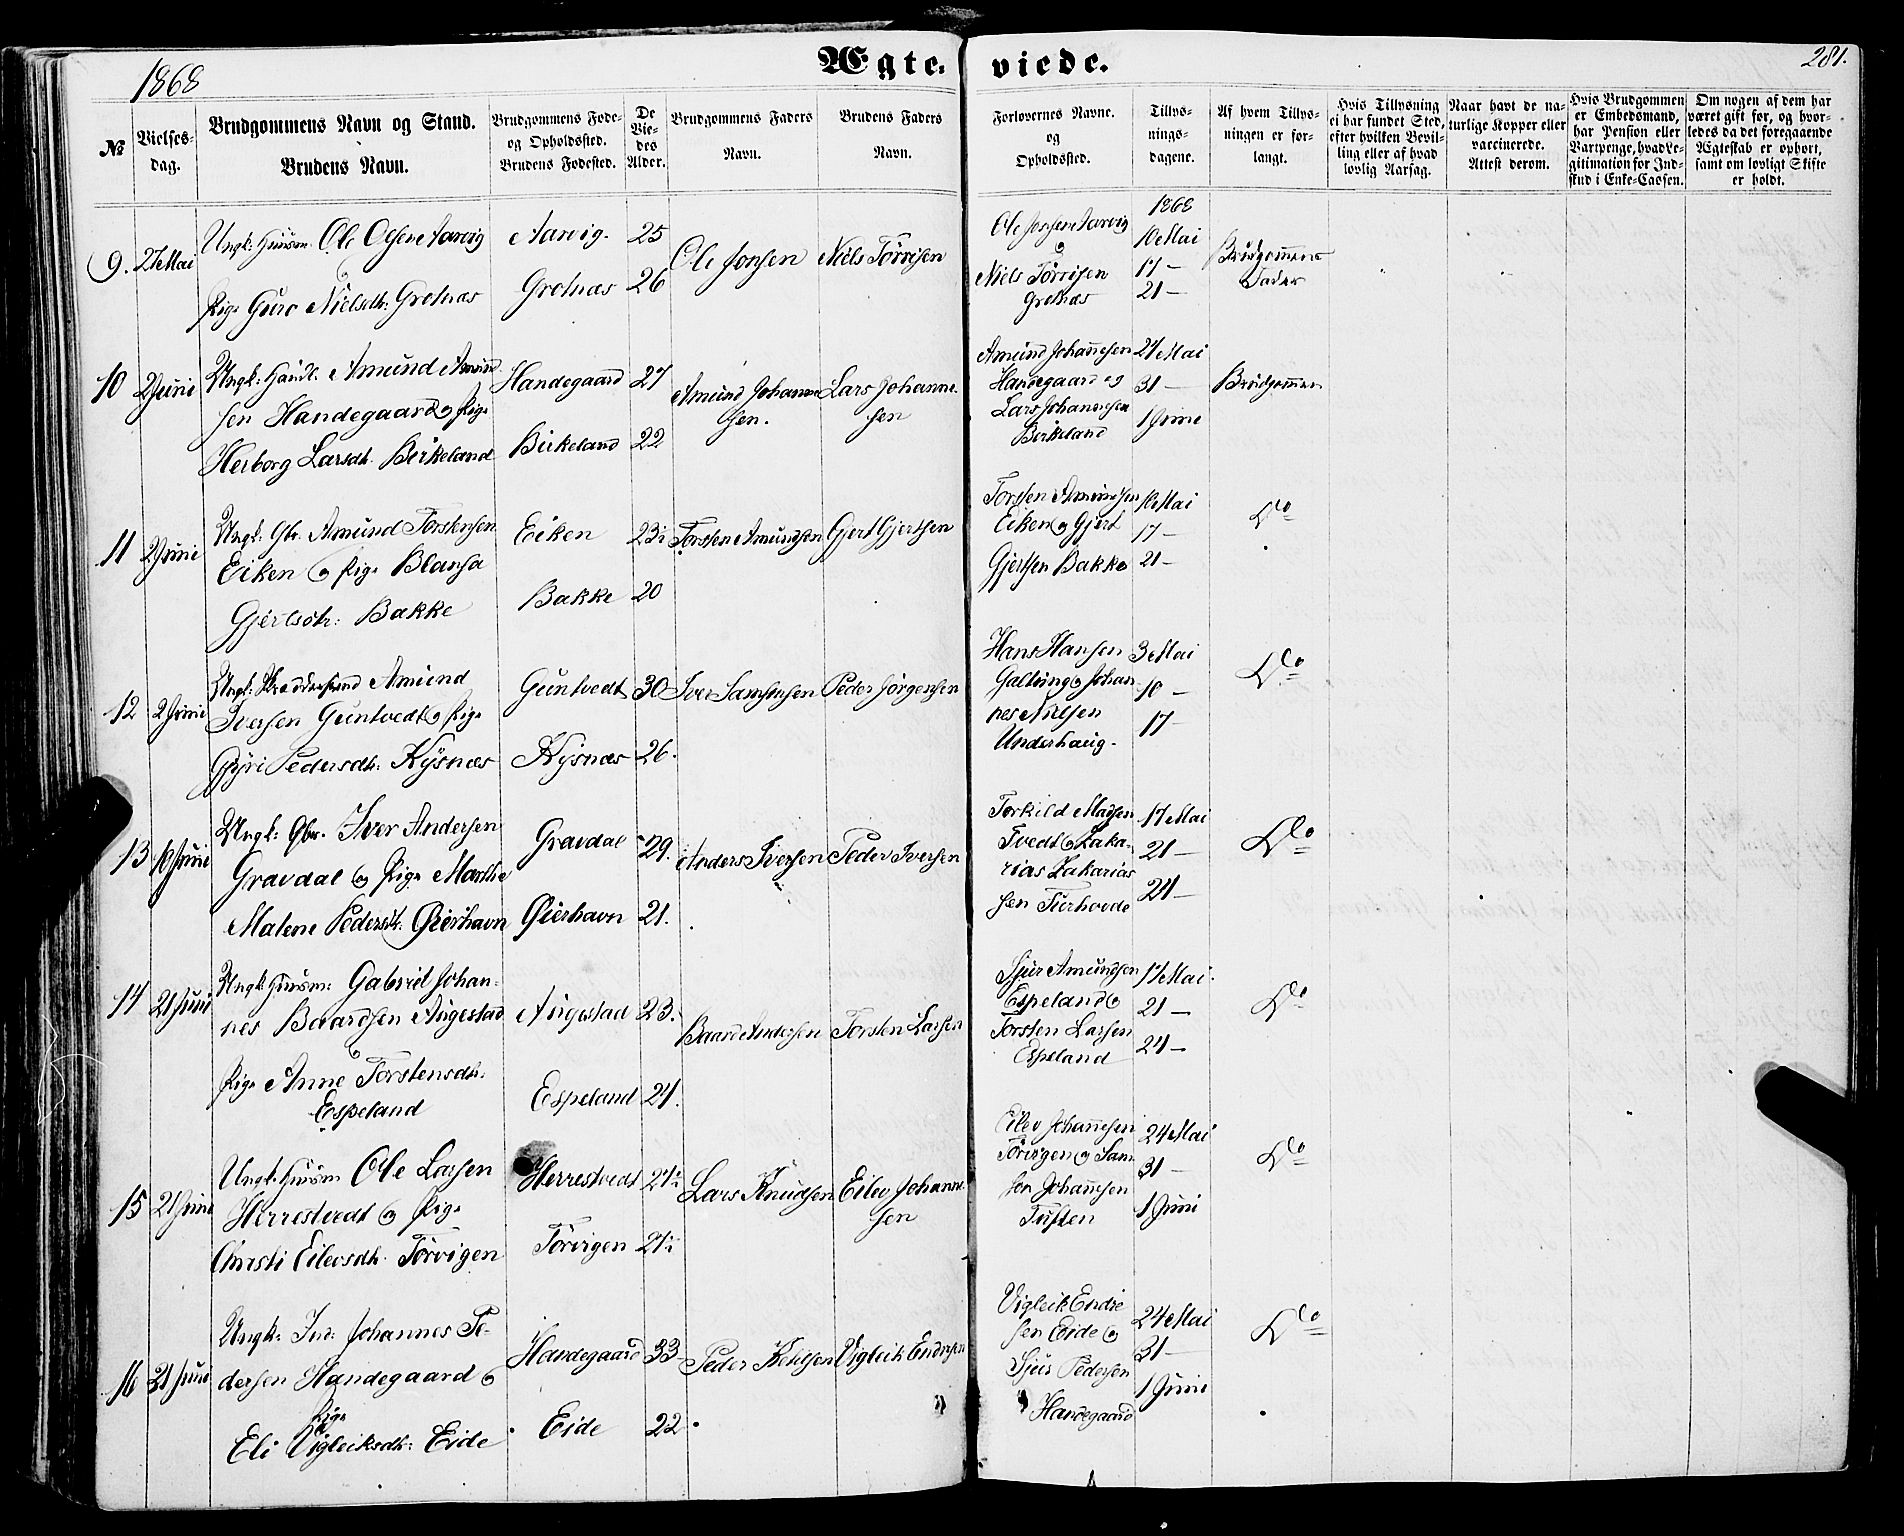 1868
Ægteviede.
281.
№
Vielses-
dag.
Brudgommens Navn og Stand.
Brudens Navn.
Brudgommens Føde-
og Opholdssted.
Brudens Fødested.
De
Vie-
des
Alder.
Brudgommens Faders
Navn.
Brudens Faders
Navn.
Forlovernes Navne.
og
Opholdssted.
Tillys-
nings-
dagene.
Af hvem Tillys-
ningen er for-
langt.
Hvis Tillysning
ei har fundet Sted,
efter hvilken Bevil-
ling eller af hvad
lovlig Aarsag.
Naar havt de na-
turlige Kopper eller
vaccinerede.
Attest derom.
Hvis Brudgommen
er Embedsmand,
har Pension eller
Vartpenge, hvad Le-
gitimation for Ind-
skud i Enke-Cassen.
Om nogen af dem har
været gift før, og hvor-
ledes da det foregaaende
Ægteskab er ophørt,
samt om lovligt Skifte
er holdt.
9. 27 Mai
Ungk: Huusm: Ole Olsen Aarvig
og
Pige Guro Nielsdtr: Grotnæs
Aarvig. 25
Grotnæs 26
Ole Jonsen
Niels Tørrisen
Ole Jonsen Aarvig
og
Niels Tørrisen
Grotnæs
1868
10 Mai
17 —
21 —
Brudgommens
Fader
10 2 Juni
Ungk: Amund Amund
sen Handegaard og Pige
Herborg Larsdtr. Birkeland
Handegaard 27
Birkeland 22
Amund Johanne
sen.
Lars Johanne
sen
Amund Johannesen
Handegaard og
Lars Johannesen
Birkeland
24 Mai
31 —
1 Juni
Brudgommen
11 2 Juni
Ungk: Gbr. Amund Torstensen
Eiken og Pige Blansa
Gjertsdtr: Bakke
Eiken 23
Bakke 20
Torsten Amundsen
Gjert Gjertsen
Torsten Amundsen
Eiken og Gjert
Gjertsen Bakke
10 Mai
17 —
21 —
Do
12 2 Juni
Ungk: Amund
Iversen Guntvedt og Pige
Gyri Pedersdtr: Kysnæs
Guntvedt 30
Kysnæs 26.
Iver Samsonsen
Peder Jørgensen
Hans Hansen
Galtung og Johan
nes Nielsen
Underhaug.
3 Mai
10 —
17 —
Do
13 10 Juni
Ungk: Gbr. Iver Andersen
Gravdal og Pige Marthe
Malene Pedersdtr. Gierhavn
Gravdal 29.
Gierhavn 21.
Anders Iversen
Peder Iversen
Torkild Madsen
Tvedt og Zaka-
rias Zakarias
sen Turhovde
17 Mai
21 —
24 —
Do
14 21 Juni
Ungk: Huusm: Gabriel Johan-
nes Baardsen Augestad
og
Pige Anne Torstensdtr:
Espeland
Augestad 23.
Espeland 24.
Baard Andersen
Torsten Larsen
Sjur Amundsen
Espeland og
Torsten Larsen
Espeland
17 Mai
21 —
24 —
Do
15 21 Juni
Ungk: Huusm Ole Larsen
Herrestvedt og Pige
Christi Eilevsdtr. Tørvigen
Herrestvedt 24
Tørvigen 24
Lars Knudsen
Eilev Johanne
sen
Eilev Johannesen
Tørvigen og Sam
son Johannesen
Tuften
24 Mai
31 —
1 Juni
Do
16 21 Juni
Ungk: Ind: Johannes Pe-
dersen Handegaard og
Pige
Eli Vigleiksdtr: Eide
Handegaard 33
Eide 22
Peder Ketilsen
Vigleik Endresen
Vigleik Endre
sen Eide og
Sjur Pedersen
Handegaard
24 Mai
31 —
1 Juni
Do